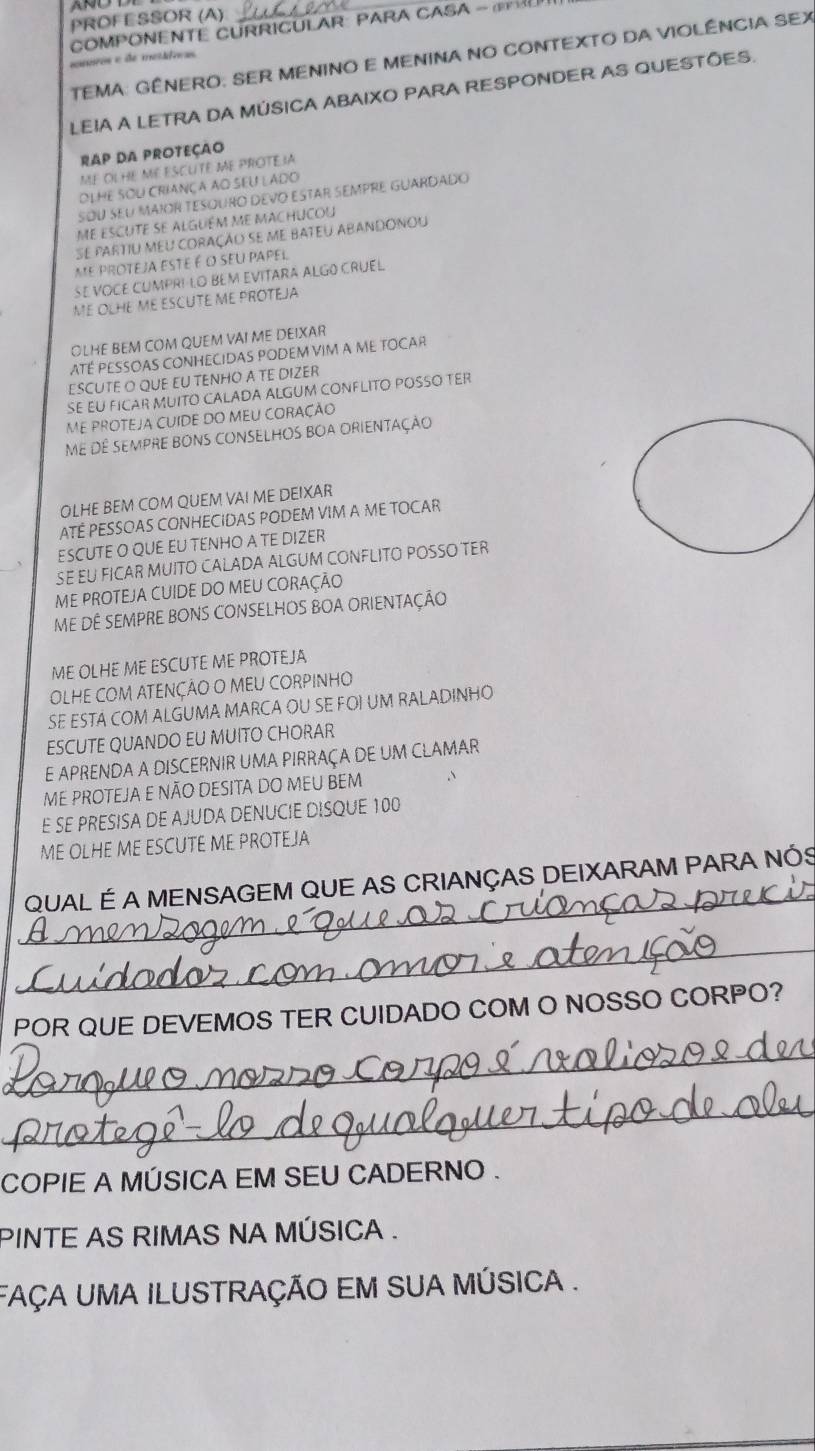 PROFESSOR (A)
COMPONENTE CURRICULAR: PARA CASA -
TEMA: GÊNERO: SER MENINO E MENINA NO CONTEXTO DA VIOLÊNCIA SEX
LEIA A LETRA DA MÚSICA ABAIXO PARA RESPONDER AS QUESTÕES.
RAP DA PROTEÇÃO
ME OLHE ME ESCUTE ME PROTEJA
OLHE SOU CRIANÇA AO SEU LADO
SOU SEU MAIOR TESOURO DEVO ESTAR SEMPRE GUARDADO
ME ESCUTE SE ALGUÉM ME MACHUCOU
SE PARTIU MEU CORAÇÃO SE ME BATEU ABANDONOU
ME PROTEJA ESTE É O SEU PAPEL
SE VOCE CUMPRI-LO BEM EVITARÁ ALGO CRUEL
ME OLHE ME ESCUTE ME PROTEJA
OLHE BEM COM QUEM VAI ME DEIXAR
ATÉ PESSOAS CONHECIDAS PODEM VIM A ME TOCAR
ESCUTE O QUE EU TENHO A TE DIZER
SE EU FICAR MUITO CALADA ALGUM CONFLITO POSSO TER
ME PROTEJA CUIDE DO MEU CORAÇÃO
ME DÊ SEMPRE BONS CONSELHOS BOA ORIENTAÇÃO
OLHE BEM COM QUEM VAI ME DEIXAR
ATÉ PESSOAS CONHECIDAS PODEM VIM A ME TOCAR
ESCUTE O QUE EU TENHO A TE DIZER
SE EU FICAR MUITO CALADA ALGUM CONFLITO POSSO TER
ME PROTEJA CUIDE DO MEU CORAÇÃO
ME DÊ SEMPRE BONS CONSELHOS BOA ORIENTAÇÃO
ME OLHE ME ESCUTE ME PROTEJA
OLHE COM ATENÇÃO O MEU CORPINHO
SE ESTÁ COM ALGUMA MARCA OU SE FOI UM RALADINHO
ESCUTE QUANDO EU MUITO CHORAR
E APRENDA A DISCERNIR UMA PIRRAÇA DE UM CLAMAR
ME PROTEJA E NÃO DESITA DO MEU BEM
E SE PRESISA DE AJUDA DENUCIE DISQUE 100
ME OLHE ME ESCUTE ME PROTEJA
QUAL É A MENSAGEM QUE AS CRIANÇAS DEIXARAM PARA NÓS
A mensagem é que as crianças preci
cuidados com amor e atenção
POR QUE DEVEMOS TER CUIDADO COM O NOSSO CORPO?
Porque o nosso corpo é valioso e dev
protegê-lo de qualquer tipo de abu
COPIE A MÚSICA EM SEU CADERNO .
PINTE AS RIMAS NA MÚSICA .
FAÇA UMA ILUSTRAÇÃO EM SUA MÚSICA .